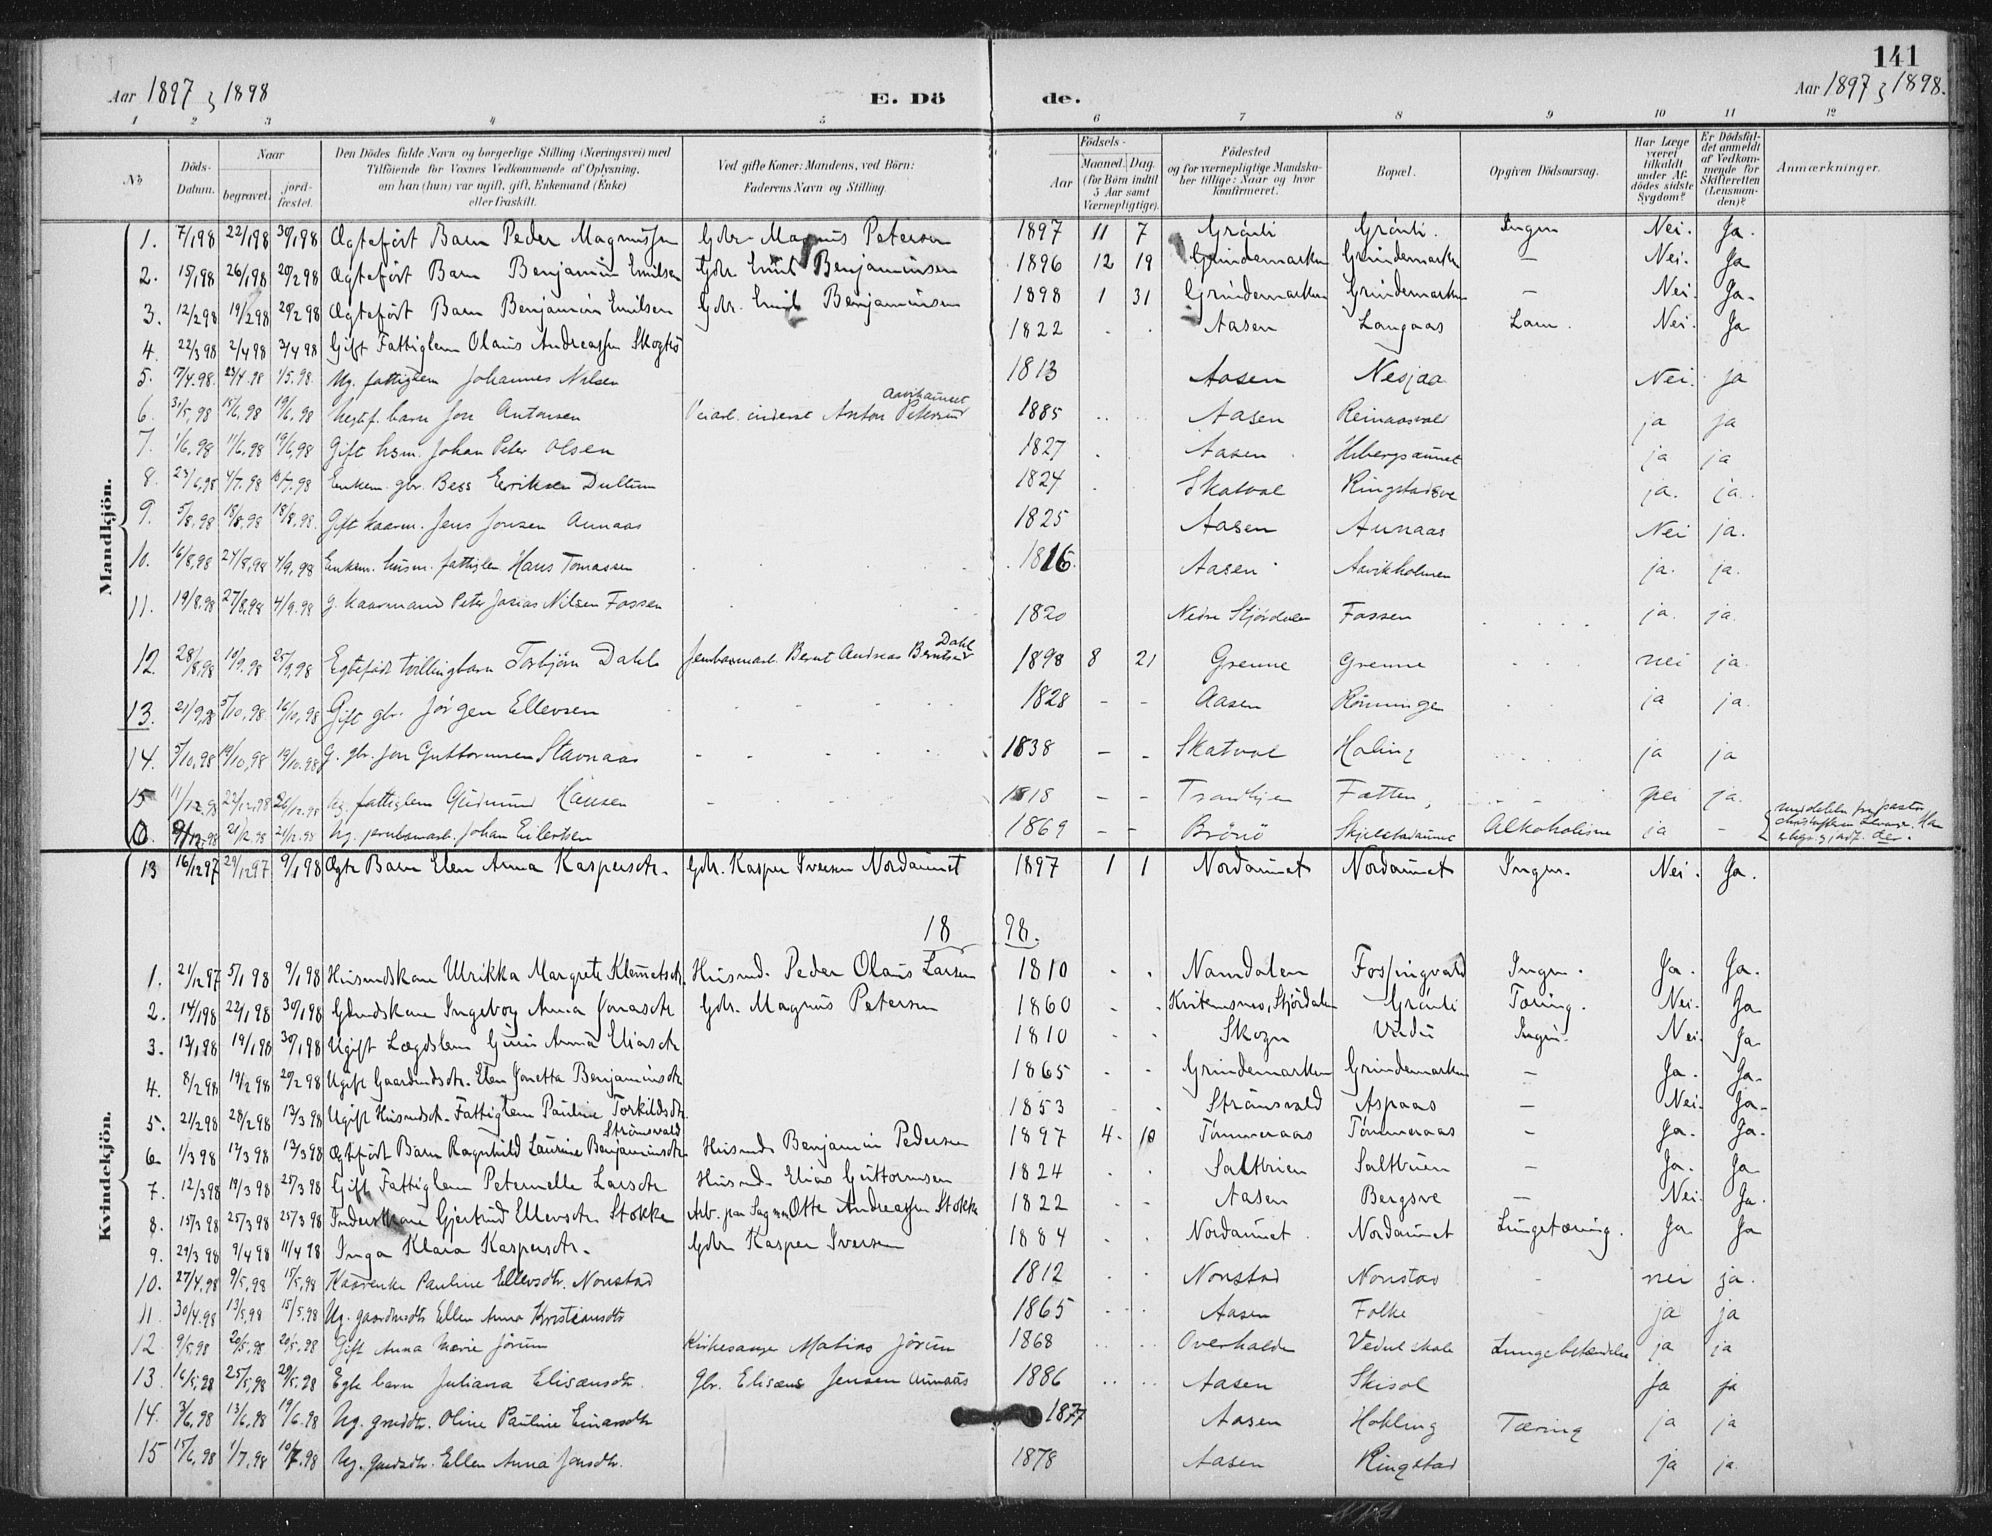 141
Aar 1897 & 1898
E. Dö de.
Aar 1897 & 1898.
1 2 3 4 5 6 7 8 9 10 11 12
No
Döds-Datum.
Naar
begravet.
jordfæstet.
Den Dödes fulde Navn og borgerlige Stilling (Næringsvei) med
Tilföiende for Voxnes Vedkommende af Oplysning,
om han (hun) var ugift, gift, Enkemand (Enke)
eller fraskilt.
Ved gifte Koner: Mandens, ved Börn:
Faderens Navn og Stilling.
Födsels-
Aar
Maaned. Dag.
(for Börn indtil
5 Aar samt
Værnepligtige).
Födested
og for værnepligtige Mandska-
ber tillige: Naar og hvor
konfirmeret.
Bopæl.
Opgiven Dödsaarsag.
Har Læge
været
tilkaldt
under Af-
dödes sidste
Sygdom?
Er Dödsfal-
det anmeldt
af Vedkom-
mende for
Skifteretten
(Lensman-
den)?
Anmærkninger.
Mandkjön.
1. 7/1 98 22/1 98 30/1 98 Ægtefört Barn Peder Magnussen Gdbr. Magnus Petersen 1897 11 7 Grönli Grönli. Ingen Nei. Ja.
2. 15/1 98 26/1 98 20/2 98 Ægtefört Barn Benjamin Emilsen Gdbr. Emil Benjaminsen 1896 12 19 Grindemarken Grindemarken — Nei. Ja
3. 12/2 98 19/2 98 20/2 98 Ægtefört Barn Benjamin Emilsen Gdbr. Emil Benjaminsen 1898 1 31 Grindemarken Grindemarken — Nei. Ja.
4. 22/3 98 2/4 98 3/4 98 Gift Fattiglem Olaus Andreassen 1822 Aasen Langaas Lam. Nei. Ja
5. 17/4.98. 23/4.98 1/5.98. Ug. fattiglem Johannes Nilsen 1813 Aasen Nesjaa Nei. ja
6. 31/5.98 15/6.98 19/6.98 barn Jon Antonsen inderst Anton Petersen 1885 Aasen Reinaasvald ja ja
7. 1/6.98 11/6.98 19/6.98 Gift hsm. Johan Peter Olsen 1827 Aasen ja ja
8. 23/6.98 4/7.98 Enkem. gbr. Bess Eriksen Dullum 1824 Skatval ja. ja.
9. 5/8.98 18/8.98 18/8.98. Gift kaarm. Jens Jonsen Aunaas 1825 Aasen Aunaas Nei ja.
10. 16/8.98 24/8.98 4/9.98 Enkem. husm. fattiglem Hans Tomassen 1816 Aasen Aavikholmen ja. ja.
11. 19/8.98 27/8.98 4/9.98 g. kaarmand Peter Josias Nilsen Fossen 1820 Nedre Stjördalen Fossen ja. ja.
12. 28/8.98 19/9.98 25/9.98 Egtefödt tvillingbarn Torbjörn Dahl Jernbanearb. Bernt Andreas Berntsen Dahl 1898 8 21 Grenne Grenne nei ja.
13. 21/9.98 5/10.98 16/10.98 Gift gbr. Jörgen Ellevsen 1828 — — Aasen Rönningen ja ja.
14. 5/10.98 19/10.98 19/10.98 G. gbr. Jon Guttormsen Stavnaas 1838 — - Skatval ja ja
15 11/12.98 22/12.98 26/12.98 Ug. fattiglem Hansen 1818 — — Fætten, nei ja.
21/12.98 21/12.98 Ug. jernbanearb. Johan Eilertsen 1869 — — Brönö Alkoholisme ja –
Kvindekjön.
13 16/12 97 29/12 97 9/1 98 Ægte Barn Elen Anna Kaspersdtr. Gdbr. Kasper Iversen Nordaunet 1897 1 1 Nordaunet Nordaunet Ingen. Nei. Ja.
18 98.
1. 21/12 97 5/1 98 9/1 98 Husmdskone Ulrikka Margrete Klemetsdtr. Husmd. Peder Olaus Larsen 1810 Namdalen Ingen. Ja. Ja.
2. 14/1 98 22/1 98 30/1 98 Gdmdskone Ingeborg Anna Jonasdtr. Gdbr. Magnus Petersen 1860 Stjördalen Grönli Tæring. Nei. Ja
3. 13/1 98 19/1 98 30/1 98 Ugift Lægdslem Anna Eliasdtr. 1810 Skogn Ingen. Nei. Ja
4. 8/2 98 19/2 98 20/2 98 Ugift Gaardmdsdtr. Elen Jonetta Benjaminsdtr. 1865 Grindemarken Grindemarken — Ja. Ja.
5. 21/2 98 28/2 98 13/3 98 Ugift Husmdsdtr. Fattiglem Pauline Torkildsdtr. Strömsvald 1853 Strömsvald Aspaas — Nei. Ja.
6. 1/3 98 13/3 98 Ægtefört Barn Ragnhild Laurine Benjaminsdtr. Husmd. Benjamin Pedersen 1897 4 10 Tömmeraas Tömmeraas — Ja. Ja.
7. 12/3 98 19/3 98 25/3 98 Gift Fattiglem Peternelle Larsdtr. Husmd. Elias Guttormsen 1824 Saltbuen Saltbuen — Ja. Ja
8. 15/3 98 25/3 98 25/3 98 Inderstkone Gjertrud Ellevsdtr. Stokke Arb. paa Sagen Otte Andreassen Stokke 1822 Aasen Bergsve — Nei. Ja.
9. 29/3 98 9/4 98 11/4 98 Inga Klara Kaspersdtr. Gdbr. Kasper Iversen 1884 Nordaunet Nordaunet Lungetæring. Ja. Ja
10. 27/4.98 9/5.98 15/5.98 Kaarenke Pauline Ellevsdtr. Nonstad 1812 Nonstad Nonstad nei ja.
11. 30/4.98 13/5.98 15/5.98 Ug. gaardmdsdtr. Ellen Anna Kristiansdtr. 1865 Aasen Folke ja ja
12 9/5.98 20/5.98 20/5.98 Gift Anna Marie Jörum Kirkesanger Matias Jörum 1868 Overhalden Vedul skole Lungebetændelse ja ja
13. 16/5.98 25/5.98 29/5.98 Egte barn Juliana Elisæusdtr. Gbr. Elisæus Jensen Aunaas 1886 Aasen Skisol Ja ja
14. 3/6.98 13/6.98 19/6.98 Ug. grmdsdtr. Oline Pauline Einarsdtr. 1877 Aasen Hokling Tæring ja ja
15 15/6.98 1/7.98 10/7.98 Ug. Ellen Anna Jonsdtr. 1878 Aasen Ringstad ja ja.